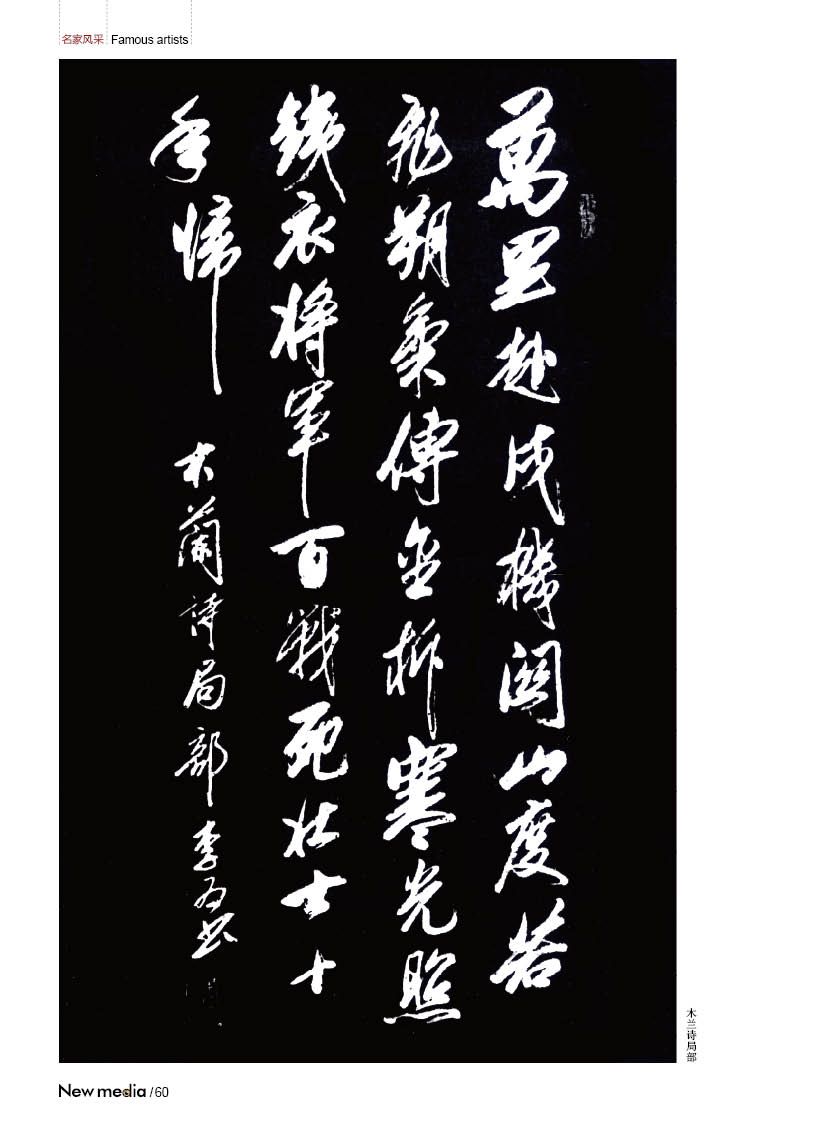 名家风采 Famous artists
萬里赴戎機關山度若
飛朔氣傳金柝寒光照
鐵衣將軍百戰死壯士十
年歸
木蘭詩局部 李为书
木兰诗局部
New media / 60